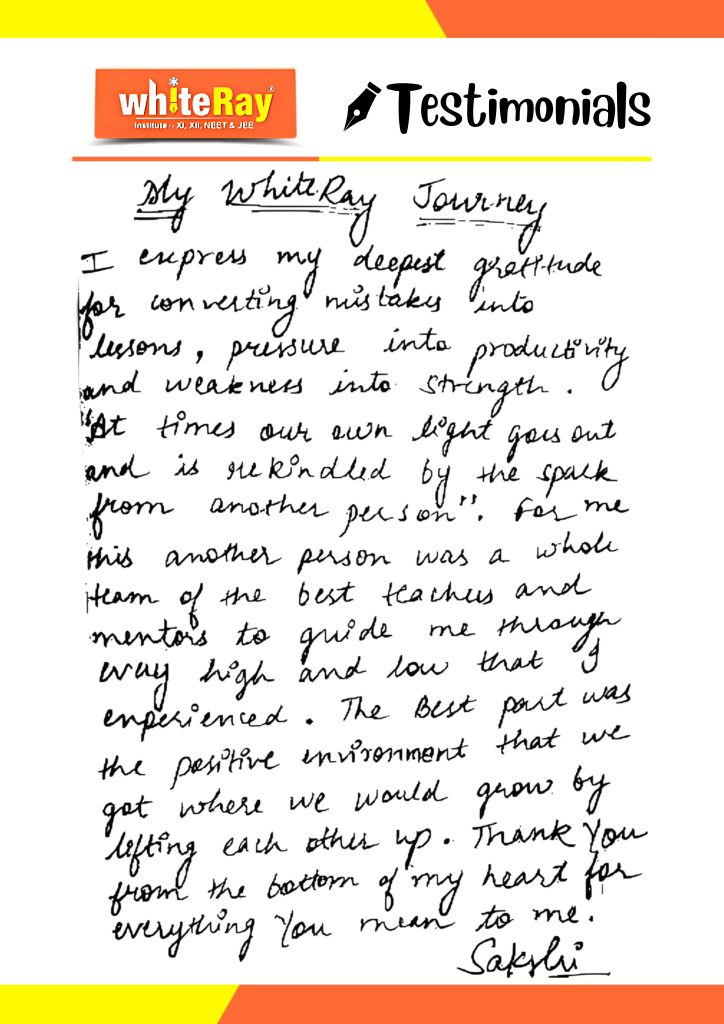 whiteRay
Institute :- XI, XII, NEET & JEE
Testimonials
My WhiteRay Journey
I express my deepest gratitude
for converting mistakes into
lessons, pressure into productivity
and weakness into strength.
"At times our own light goes out
and is rekindled by the spark
from another person". For me
this another person was a whole
team of the best teachers and
mentors to guide me through
every high and low that I
experienced. The Best part was
the positive environment that we
got where we would grow by
lifting each other up. Thank You
from the bottom of my heart for
everything You mean to me.
Sakshi